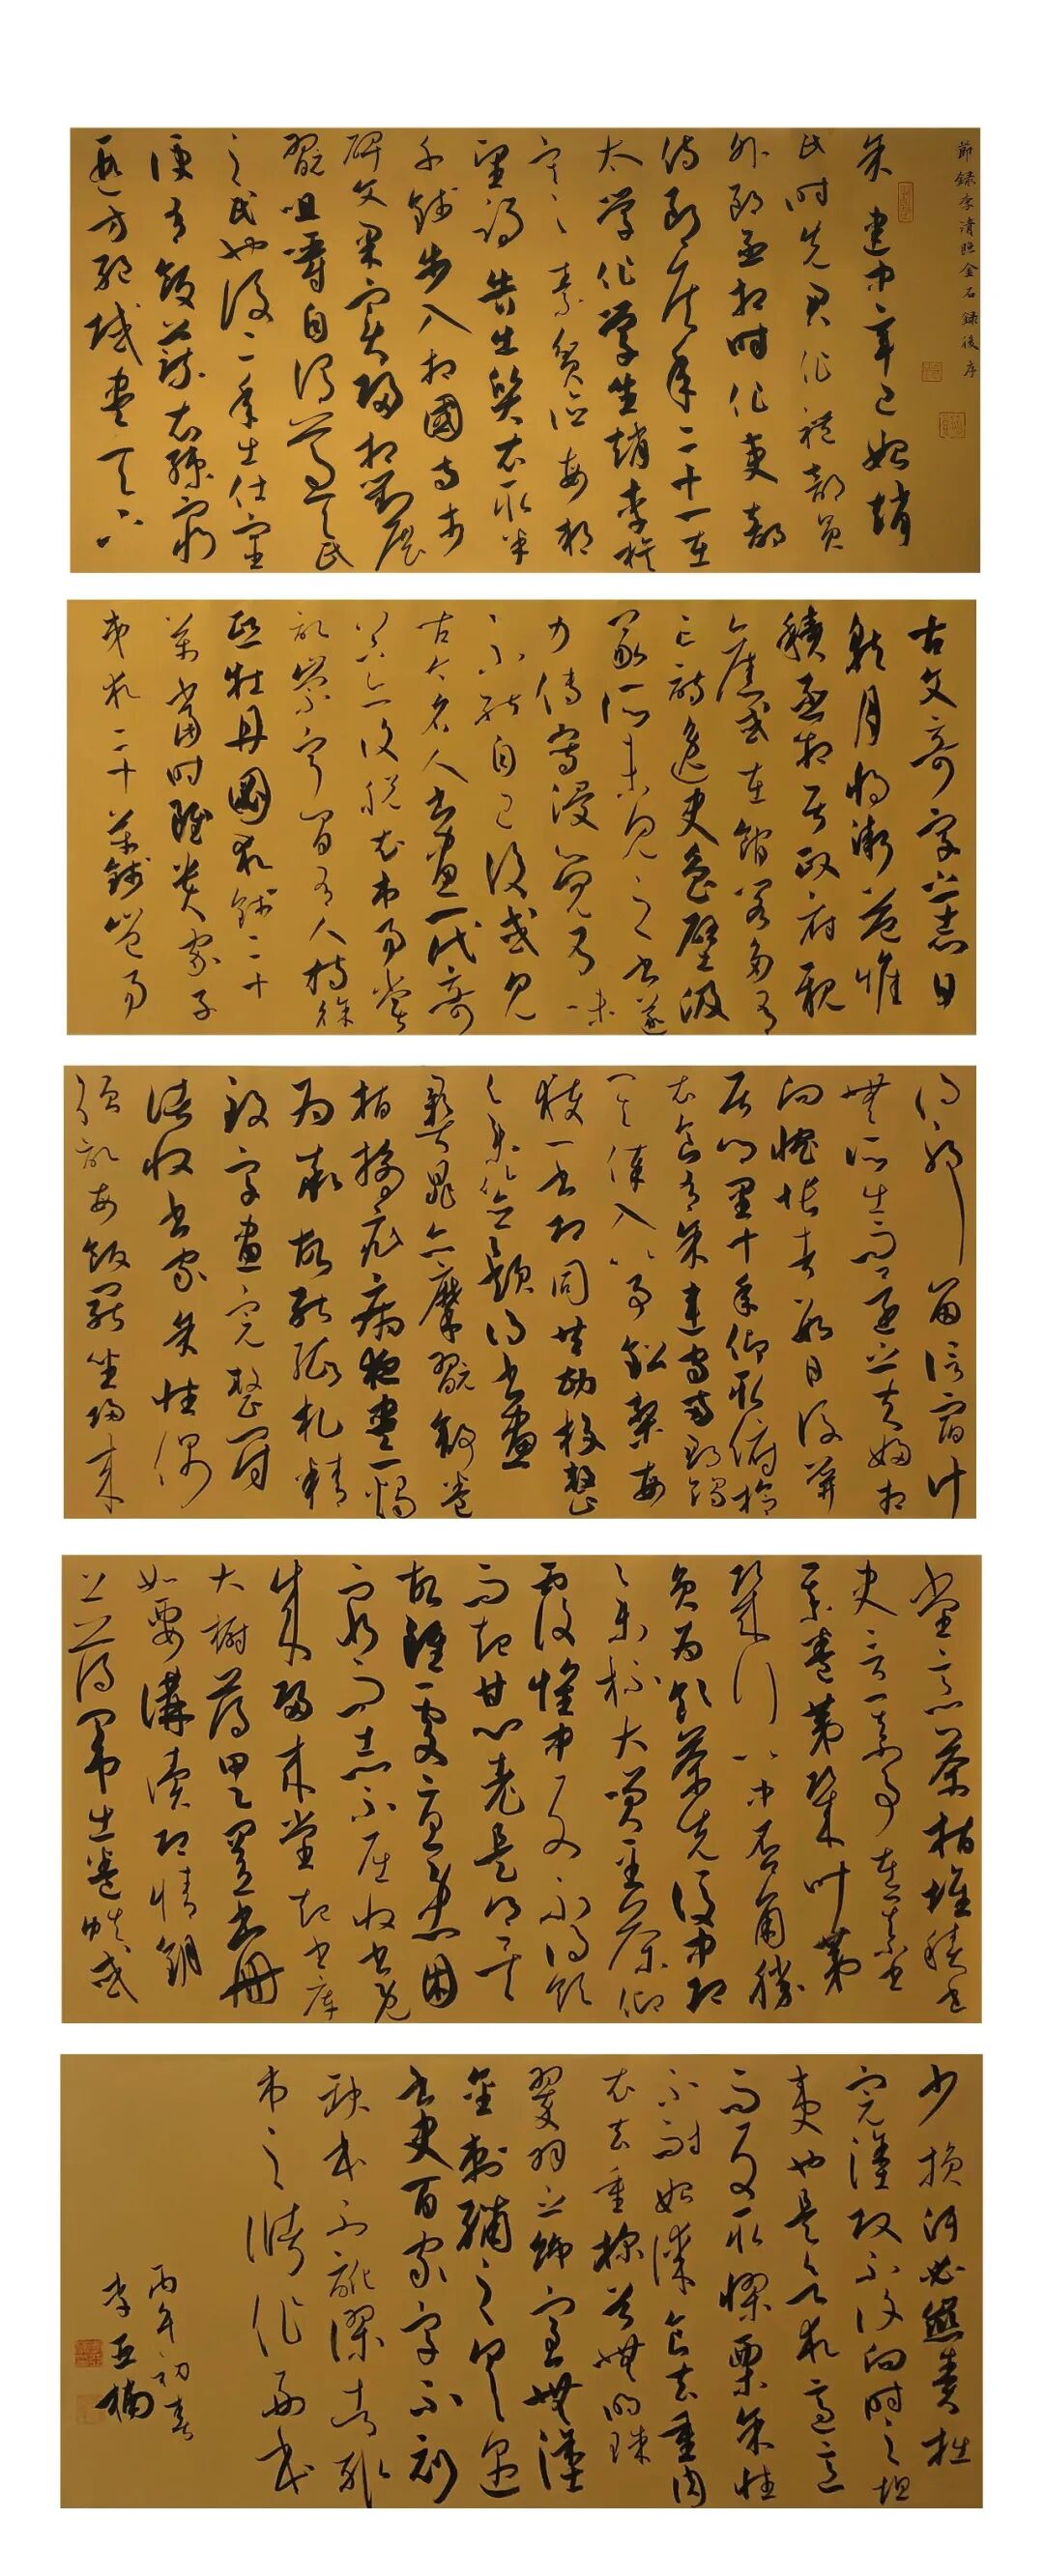 節録李清照金石録後序
余建中辛巳始歸趙
氏時先君作禮部員
外郎丞相時作吏部
侍郎侯年二十一在
太學作學生趙李族
寒素貧儉每朔
望謁告出質衣取半
千錢步入相國寺市
碑文果實歸相對展
翫咀嚼自謂葛天氏
之民也後二年出仕宦
便有飯蔬衣練窮
遐方絕域盡天下
古文奇字之志日
就月將漸益堆
積丞相居政府親
舊或在館閣多有
亡詩逸史魯壁汲
冢所未見之書遂
力傳寫浸覺有味
不能自已後或見
古今名人書畫一代奇
器亦復脫衣市易嘗
記崇寧間有人持徐
熙牡丹圖求錢二十
萬當時雖貴家子
弟求二十萬錢豈易
得耶留信宿計
無所出而還之夫婦相
向惋悵者數日後屏
居鄉里十年仰取俯拾
衣食有余連守兩郡竭
其俸入以事鉛槧每
獲一書即同共勘校整
集簽題得書畫
彝鼎亦摩翫舒卷
指摘疵病夜盡一燭
為率故能紙札精
致字畫完整冠
諸收書家余性偶
強記每飯罷坐歸來
堂烹茶指堆積書
史言某事在某書
某卷第幾葉第
幾行以中否角勝
負為飲茶先後中即
舉杯大笑至茶傾
覆懷中反不得飲
而起甘心老是鄉矣
故雖處憂患困
窮而志不屈收書既
成歸來堂起書庫
大櫥簿甲乙置書冊
如要講讀即請鑰
上簿關出卷帙或
少損污必懲責揩
完塗改不復向時之坦
夷也是欲求適意
而反取憀慄余性
不耐始謀食去重肉
衣去重采首無明珠
翠羽之飾室無塗
金刺繡之具遇
書史百家字不刓
缺本不訛謬者輒
市之儲作副本
丙午初春
李亚楠